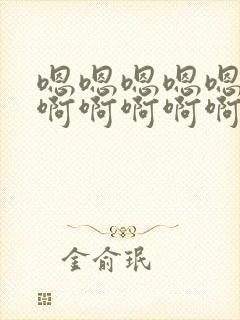 嗯嗯嗯嗯嗯
啊啊啊啊啊
金俞珉